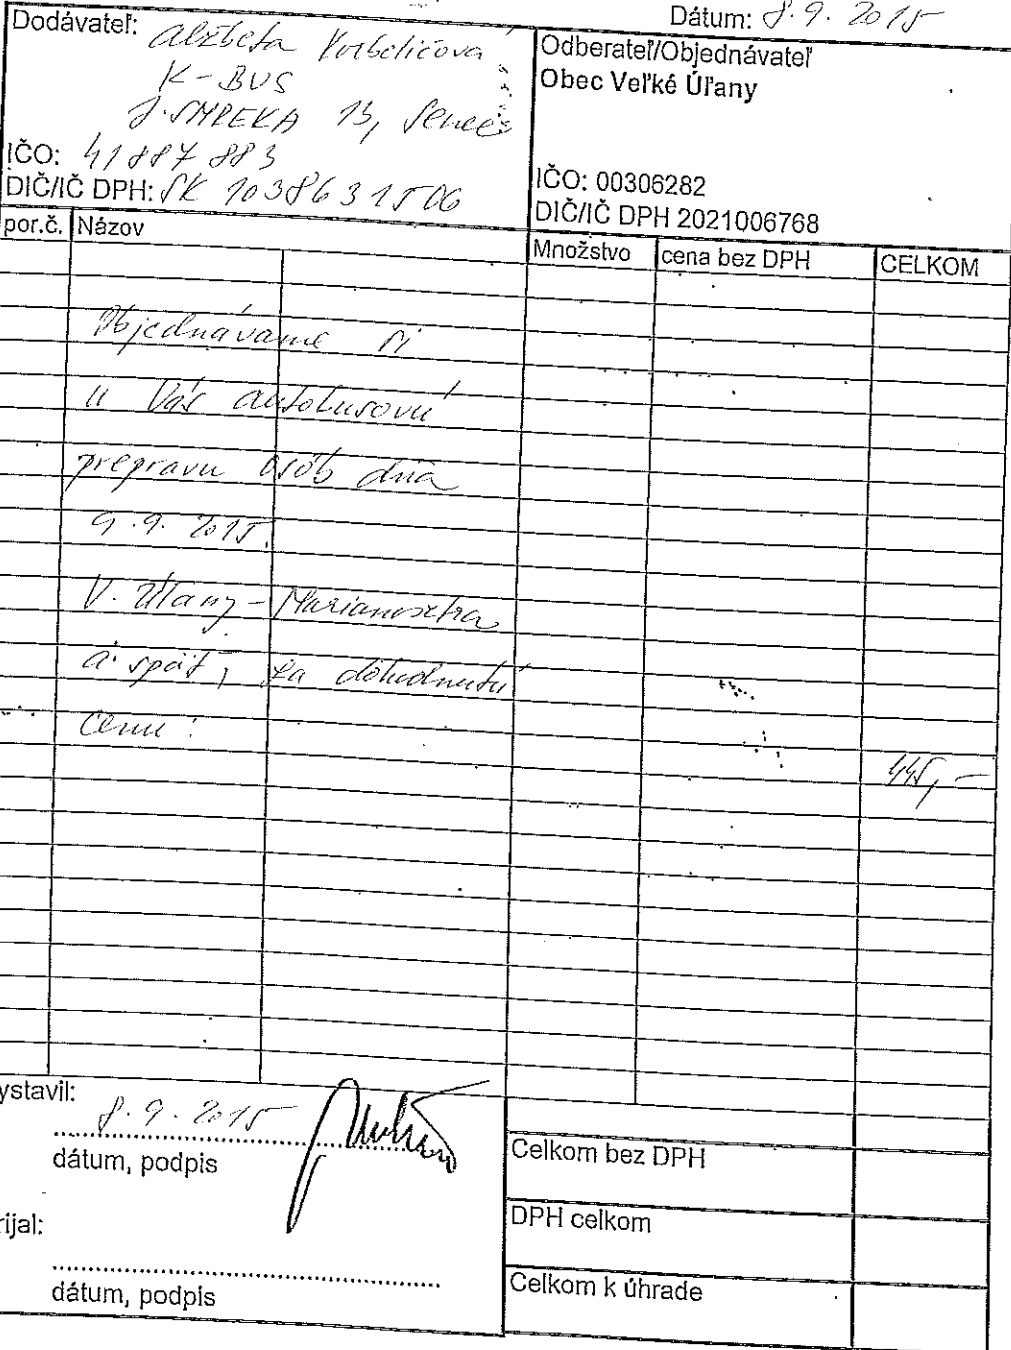 Dátum: 8.9. 2015
Dodávateľ: Alžbeta
K-BUS
J. SMREKA 13, Senec
IČO: 41887 883
DIČ/IČ DPH: SK 1038631506
Odberateľ/Objednávateľ
Obec Veľké Úľany
IČO: 00306282
DIČ/IČ DPH 2021006768
por.č. Názov Množstvo cena bez DPH CELKOM
Objednávame si
u Vás autobusovú
prepravu osôb dňa
9.9. 2015.
V. Úľany - Marianosztra
a späť, za dohodnutú
cenu:
445,-
ystavil:
8.9.2015
dátum, podpis
rijal:
dátum, podpis
Celkom bez DPH
DPH celkom
Celkom k úhrade